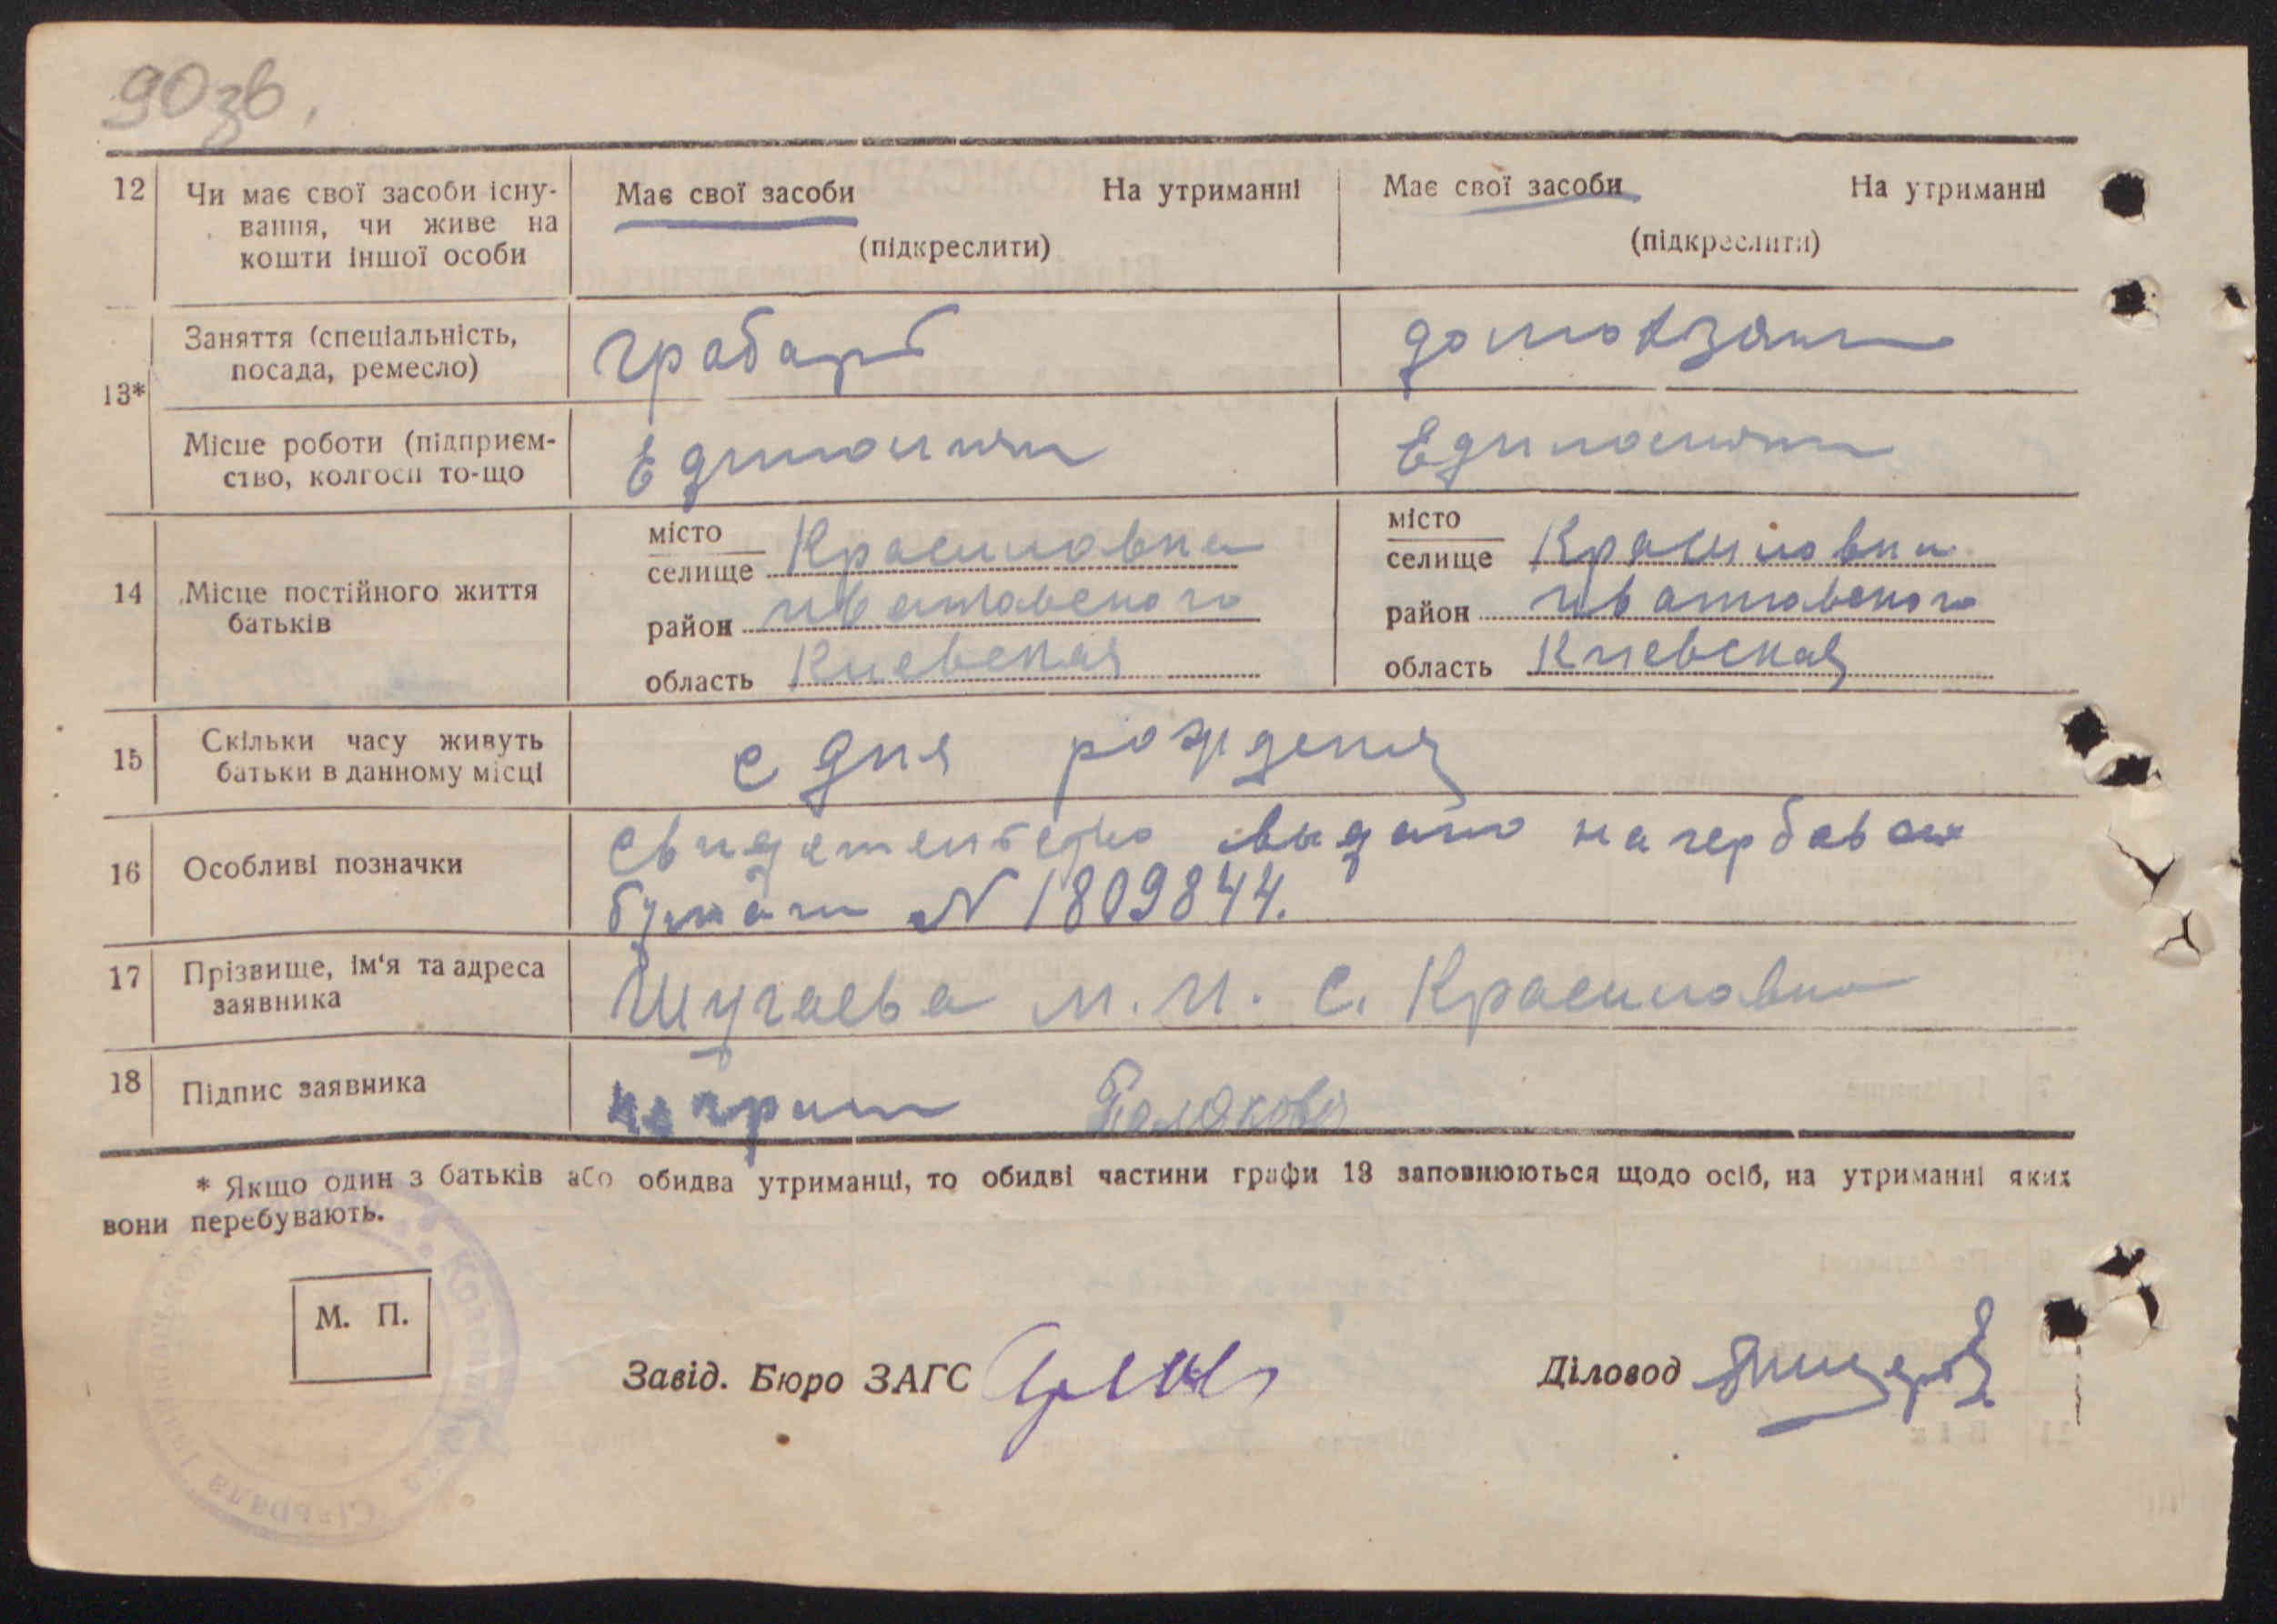 90зв.
12 Чи має свої засоби існу- Має свої засоби На утриманні Має свої засоби На утриманні
вання, чи живе на (підкреслити) (підкреслити)
кошти іншої особи
Заняття (спеціальність, грабарь
посада, ремесло)
13*
Місце роботи (підприєм- Единолични Единолични
ство, колгосп то-що
місто місто
селище Красиловка селище Красиловка
14 Місце постійного життя
батьків район район
область Киевская область Киевская
15 Скільки часу живуть с дня рождения
батьки в данному місці
16 Особливі позначки свидетельство выдано на гербовой
бумаги N 1809844.
17 Прізвище, ім'я та адреса Шугаева М. И. С. Красиловка
заявника
18 Підпис заявника
* Якщо один з батьків або обидва утриманці, то обидві частини графи 13 заповнюються щодо осіб, на утриманні яких
вони перебувають.
М. П.
Завід. Бюро ЗАГС Діловод